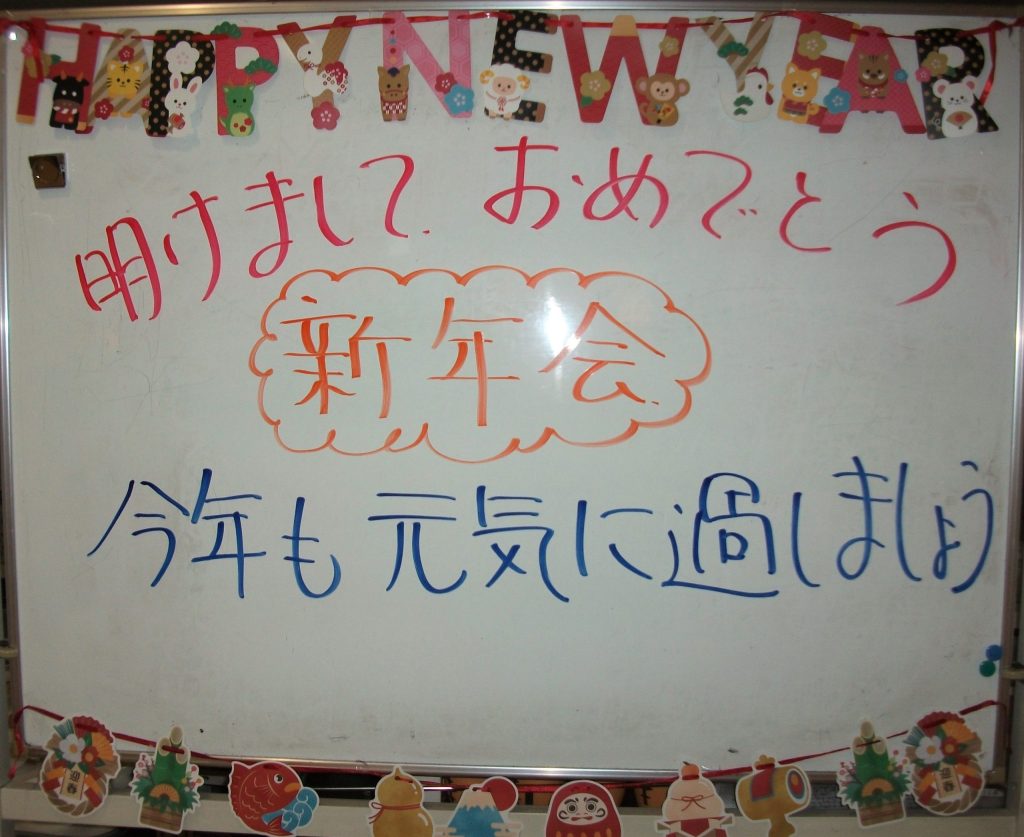 HAPPY NEW YEAR
明けまして おめでとう
新年会
今年も 元気に過しましょう
迎春
迎春